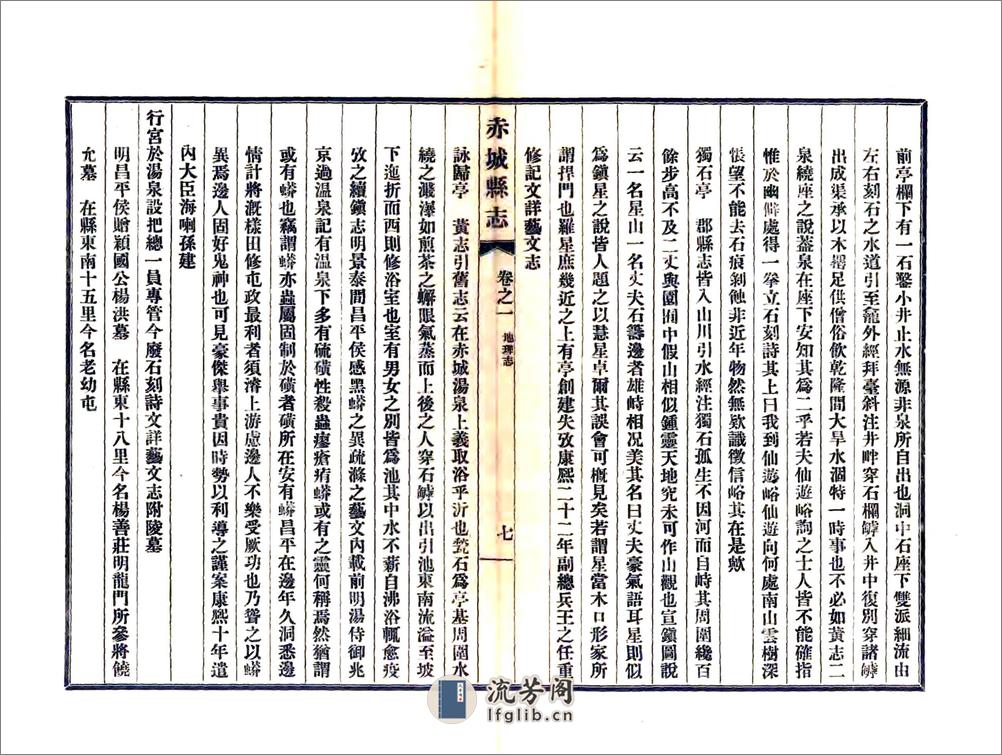 前亭欄下有一石鑿小井止水無源非泉所自出也洞中石座下雙派細流由
左右刻石之水道引至龕外經拜臺斜注井畔穿石欄罅入井中復別穿諸罅
出成渠承以木樗足供僧俗飲乾隆間大旱水涸特一時事也不必如黃志二
泉繞座之說蓋泉在座下安知其爲二乎若夫仙遊峪詢之士人皆不能確指
惟於幽僻處得一拳立石刻詩其上曰我到仙遊峪仙遊向何處南山雲樹深
悵望不能去石痕剝蝕非近年物然無欵識徵信峪其在是歟
獨石亭　郡縣志皆入山川引水經注獨石孤生不因河而自峙其周圍纔百
餘步高不及二丈與園囿中假山相似鍾靈天地究未可作山觀也宣鎭圖說
云一名星山一名丈夫石籌邊者雄峙相况美其名曰丈夫豪氣語耳星則似
爲鎭星之說皆人題之以慧星卓爾其誤會可槪見矣若謂星當木口形家所
謂捍門也羅星庶幾近之上有亭創建失攷康熙二十二年副總兵王之任重
修記文詳藝文志
赤城縣志　卷之一　地理志　七
詠歸亭　黃志引舊志云在赤城湯泉上義取浴乎沂也甃石爲亭基周圍水
繞之濺瀑如煎茶之蠏眼氣蒸而上後之人穿石罅以出引池東南流溢至坡
下迤折而西則修浴室也室有男女之別皆爲池其中水不薪自沸浴輒愈疫
攷之續鎭志明景泰間昌平侯感黑蟒之異疏滌之藝文內載前明湯侍御兆
京過温泉記有温泉下多有硫磺性殺蟲瘳瘡疥蟒或有之靈何稱焉然猶謂
或有蟒也竊謂蟒亦蟲屬固制於磺者磺所在安有蟒昌平在邊年久洞悉邊
情計將漑樣田修屯政最利者須濬上游慮邊人不樂受厥功也乃聳之以蟒
異焉邊人固好鬼神也可見豪傑舉事貴因時勢以利導之謹案康熙十年遣
內大臣海喇孫建
行宮於湯泉設把總一員專管今廢石刻詩文詳藝文志附陵墓
明昌平侯贈穎國公楊洪墓　在縣東十八里今名楊善莊明龍門所參將饒
允墓　在縣東南十五里今名老幼屯
流芳阁
lfglib.cn